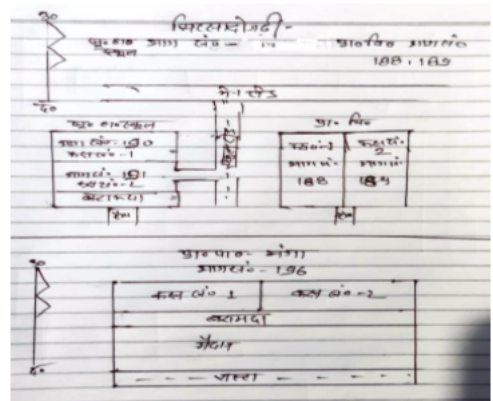 उ०
सिरसादोगढी-
जू० हा० स्कूल भाग सं०- प्रा० वि० भाग सं०
188, 189
द०
मेन रोड
जू० हा० स्कूल
भाग सं०- 190
कक्ष सं०-1
भाग सं० 191
कक्ष सं०-2
बरामदा
रैम्प
प्रा० वि०
कक्ष सं०-1
भाग सं०-
188
कक्ष सं०-
2
भाग सं०
189
रैम्प
उ०
प्रा० पा०- मंगा
भाग सं०- 196
कक्ष सं० 1 कक्ष सं०-2
बरामदा
मैदान
रास्ता
द०